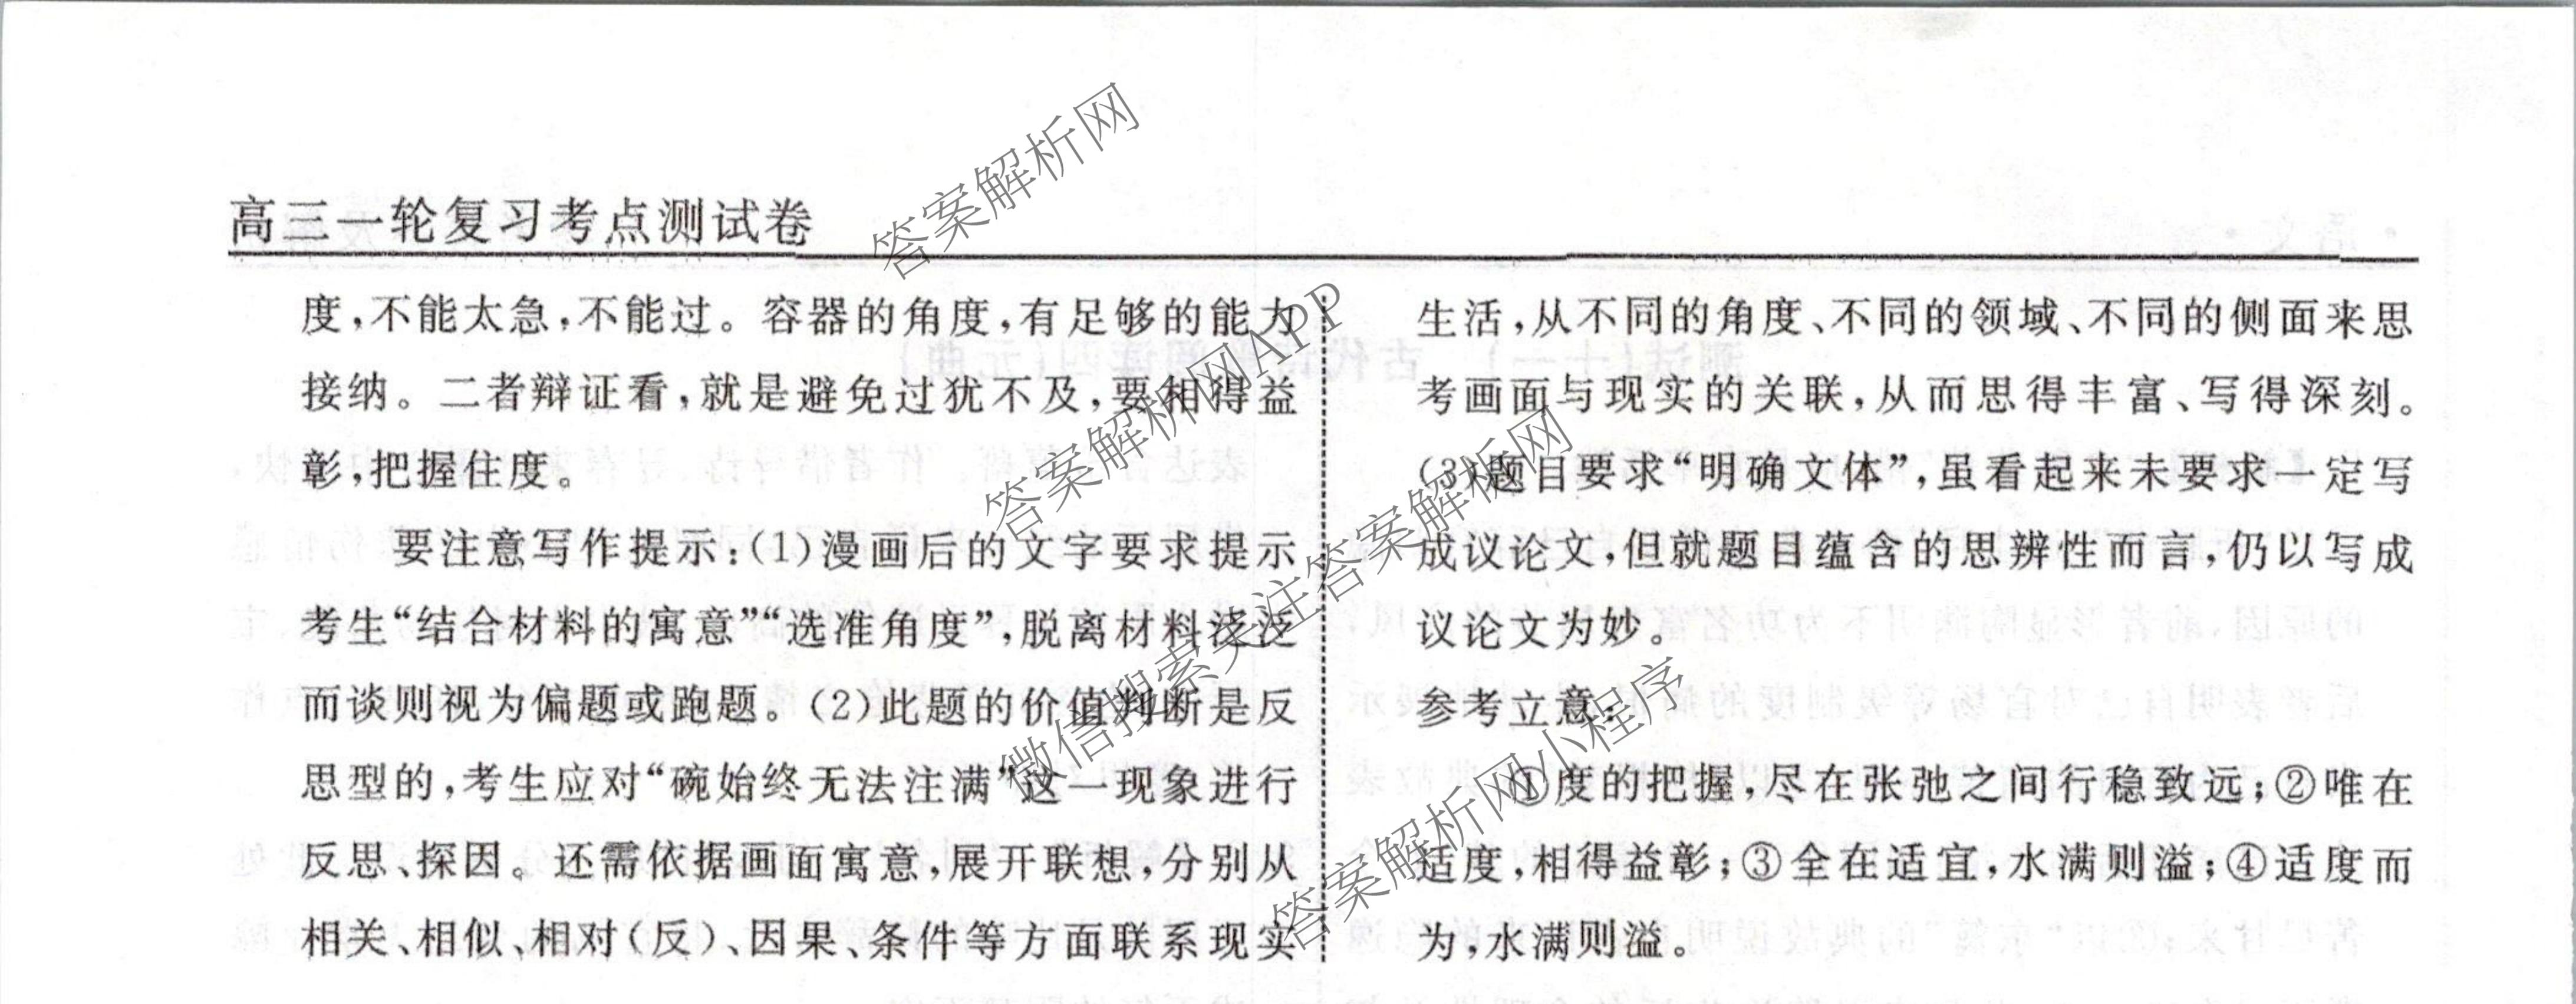 高三一轮复习考点测试卷
度,不能太急,不能过。容器的角度,有足够的能力
接纳。二者辩证看,就是避免过犹不及,要相得益
彰,把握住度。
要注意写作提示:(1)漫画后的文字要求提示
考生“结合材料的寓意”“选准角度”,脱离材料泛泛
而谈则视为偏题或跑题。(2)此题的价值判断是反
思型的,考生应对“碗始终无法注满”这一现象进行
反思、探因。还需依据画面寓意,展开联想,分别从
相关、相似、相对(反)、因果、条件等方面联系现实
生活,从不同的角度、不同的领域、不同的侧面来思
考画面与现实的关联,从而思得丰富、写得深刻。
(3)题目要求“明确文体”,虽看起来未要求一定写
成议论文,但就题目蕴含的思辨性而言,仍以写成
议论文为妙。
参考立意:
①度的把握,尽在张弛之间行稳致远;②唯在
适度,相得益彰;③全在适宜,水满则溢;④适度而
为,水满则溢。
答案解析网
答案解析网APP
微信搜索关注答案解析网
答案解析网小程序